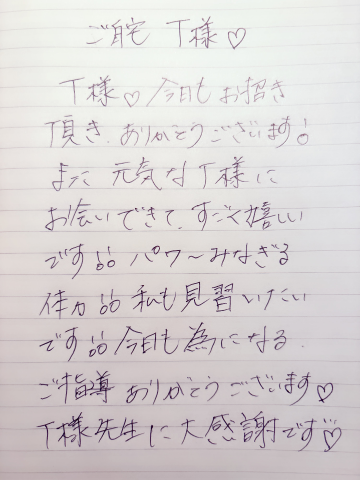 ご自宅 T様♡
T様♡今日もお招き
頂き、ありがとうございます!
また元気なT様に
お会いできて、すごく嬉しい
です。パワーみなぎる
体力 私も見習いたい
です 今日も為になる
ご指導ありがとうございます♡
T様先生に大感謝です♡